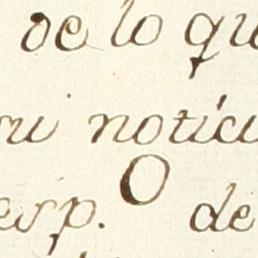 de lo qu
su notíci
esp. O de